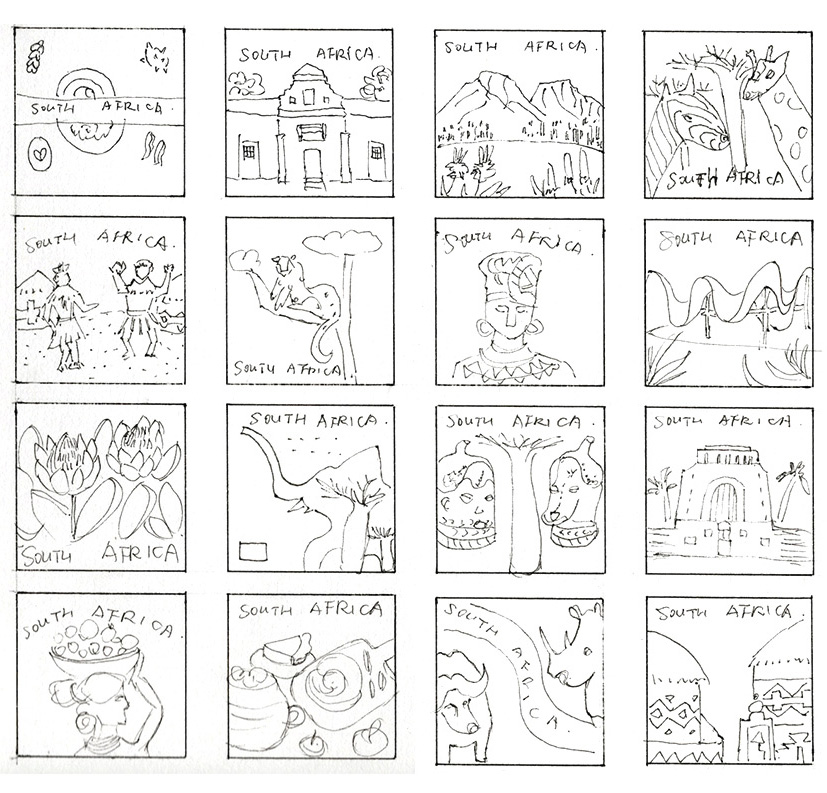 SOUTH AFRICA.
SOUTH AFRICA.
SOUTH AFRICA.
SOUTH AFRICA
SOUTH AFRICA.
SOUTH AFRICA
SOUTH AFRICA.
SOUTH AFRICA
SOUTH AFRICA
SOUTH AFRICA.
SOUTH AFRICA.
SOUTH AFRICA.
SOUTH AFRICA.
SOUTH AFRICA
SOUTH AFRICA.
SOUTH AFRICA.